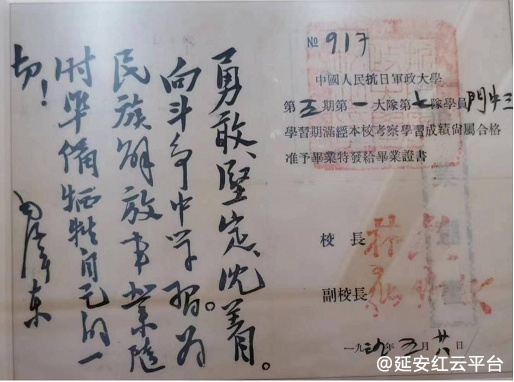 № 917
中國人民抗日軍政大學
第五期第一大隊第七隊學員
學習期滿經本校考察學習成績尚屬合格
准予畢業特發給畢業證書
校長 林
副校長
一九三九年 月廿八日
勇敢、堅定、沈着。
向斗争中学習。为
民族解放事業隨
时準備牺牲自己的一
切!
毛澤东
@延安红云平台